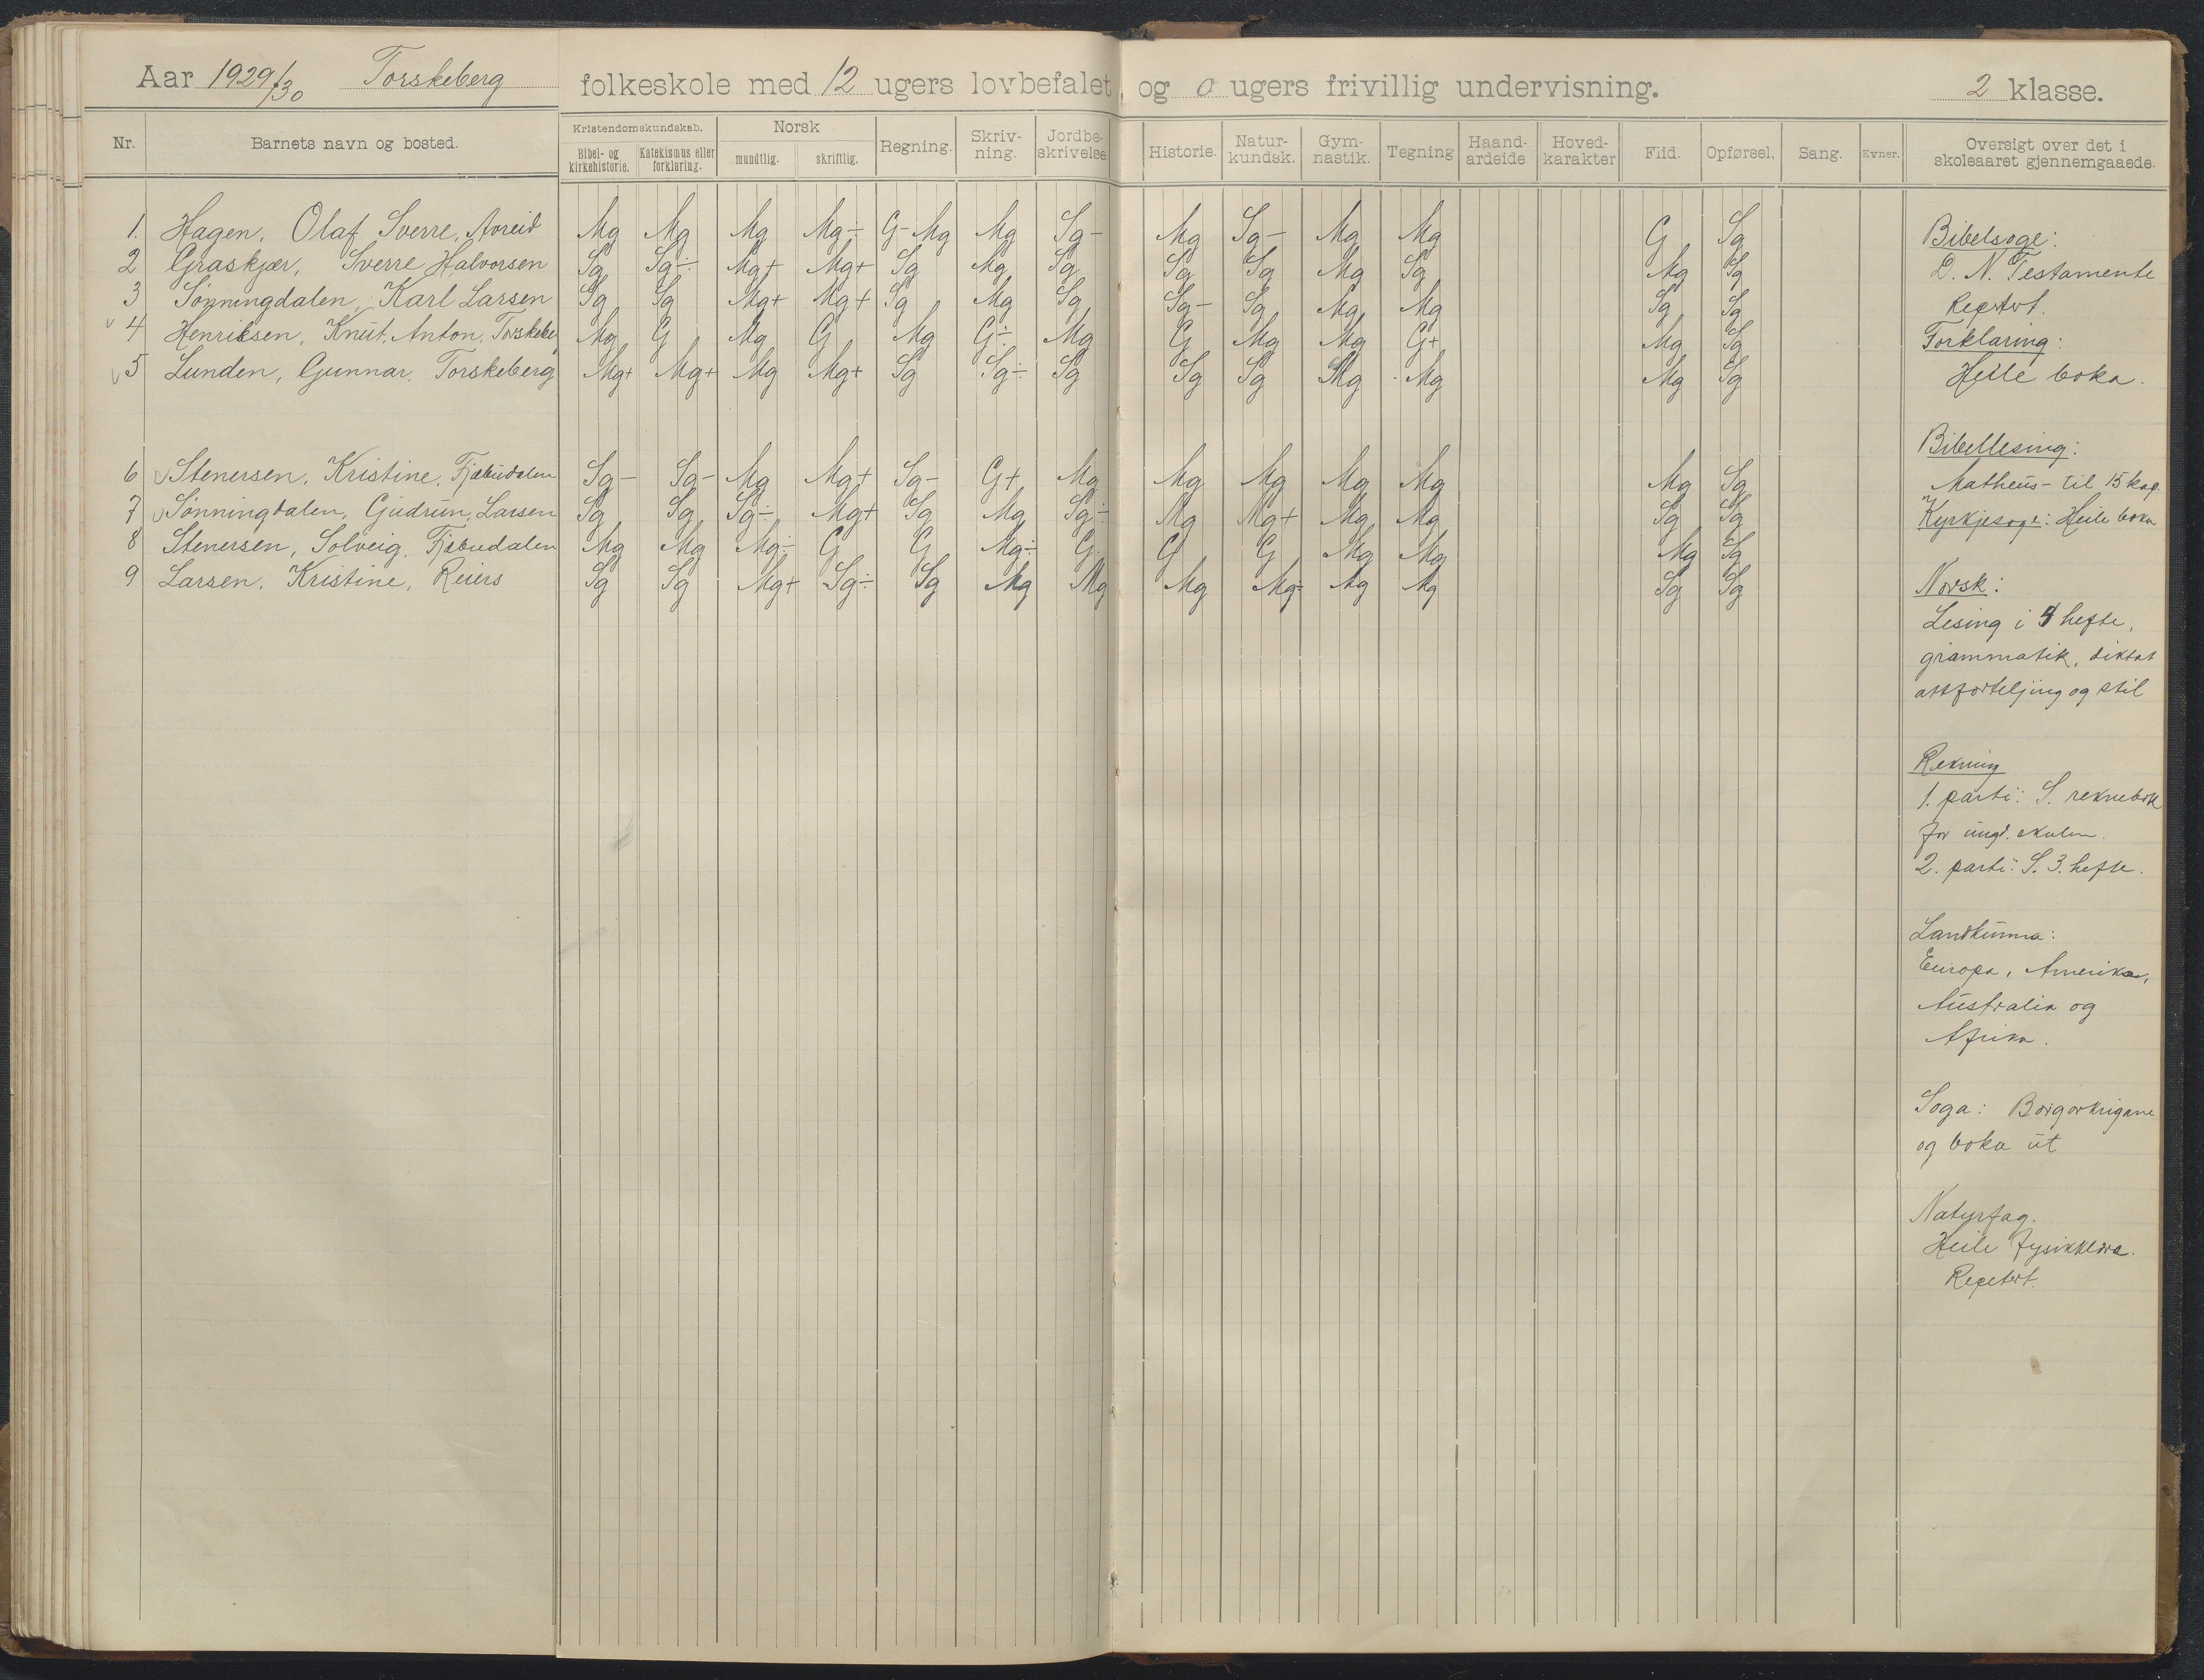 Aar 1929/30 Torskeberg folkeskole med 12 ugers lovbefalet og 0 ugers frivillig undervisning. 2 klasse.
Nr. Barnets navn og bosted. Kristendomskundskab. Bibel- og kirkehistorie. Katekismus eller forklaring. Norsk mundtlig. skriftlig. Regning. Skriv-ning. Jordbe-skrivelse. Historie. Natur-kundsk. Gym-nastik. Tegning Haand-arbeide Hoved-karakter Flid. Opførsel. Sang. Evner. Oversigt over det i skoleaaret gjennemgaaede.
1. Hagen, Olaf Sverre, Mg Mg Mg Mg÷ G-Mg Mg Sg- Mg Sg- Mg Mg G Sg
2 Graskjær, Sverre Halvorsen Sg Sg÷ Mg+ Mg+ Sg Mg Sg Sg Sg Mg Sg Mg Sg
3 Sønningdalen, Karl Larsen Sg Sg Mg+ Mg+ Sg Mg Sg Sg- Sg Mg Mg Sg Sg
4 Henriksen, Knut Anton, Mg G Mg G Mg G÷ Mg G Mg Mg G+ Mg Sg
5 Lunden, Gunnar, Torskeberg Mg+ Mg+ Mg Mg+ Sg Sg÷ Sg Sg Sg Mg Mg Mg Sg
6 Stenersen, Kristine, Fjæbudalen Sg- Sg- Mg Mg+ Sg- G+ Mg Mg Mg Mg Mg Mg Sg
7 Sønningdalen, Gudrun, Larsen Sg Sg Sg÷ Mg+ Sg Mg Sg÷ Mg Mg+ Mg Mg Sg Sg
8 Stenersen, Solveig, Fjæbudalen Mg Mg Mg÷ G G Mg÷ G G G Mg Mg Mg Sg
9 Larsen, Kristine, Reiers Sg Sg Mg+ Sg÷ Sg Mg Mg Mg Mg÷ Mg Mg Sg Sg
Bibelsoge:
D. N. Testamente
Repetert.
Forklaring:
Heile boka.
Bibellesing:
Matheus- til 15 kap.
Kyrkjesoge: Heile boka
Norsk:
Lesing i 4 hefte,
grammatik, diktat
attforteljing og stil
Rekning
1. parti: S. reknebok
for ungd. skulen.
2. parti: S. 3. hefte.
Landkunna:
Europa, Amerika,
Australia og
Afrika.
Soga: Borgarkrigane
og boka ut
Naturfag.
Heile fysikklæra.
Repetert.